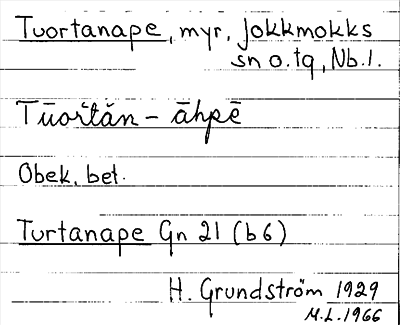 Tuortanape, myr, Jokkmokks
sn o. tg, Nb. l.
Tūor̆tăn - āhpē
Obek. bet.
Turtanape Gn 21 (b6)
H. Grundström 1929
M.L. 1966